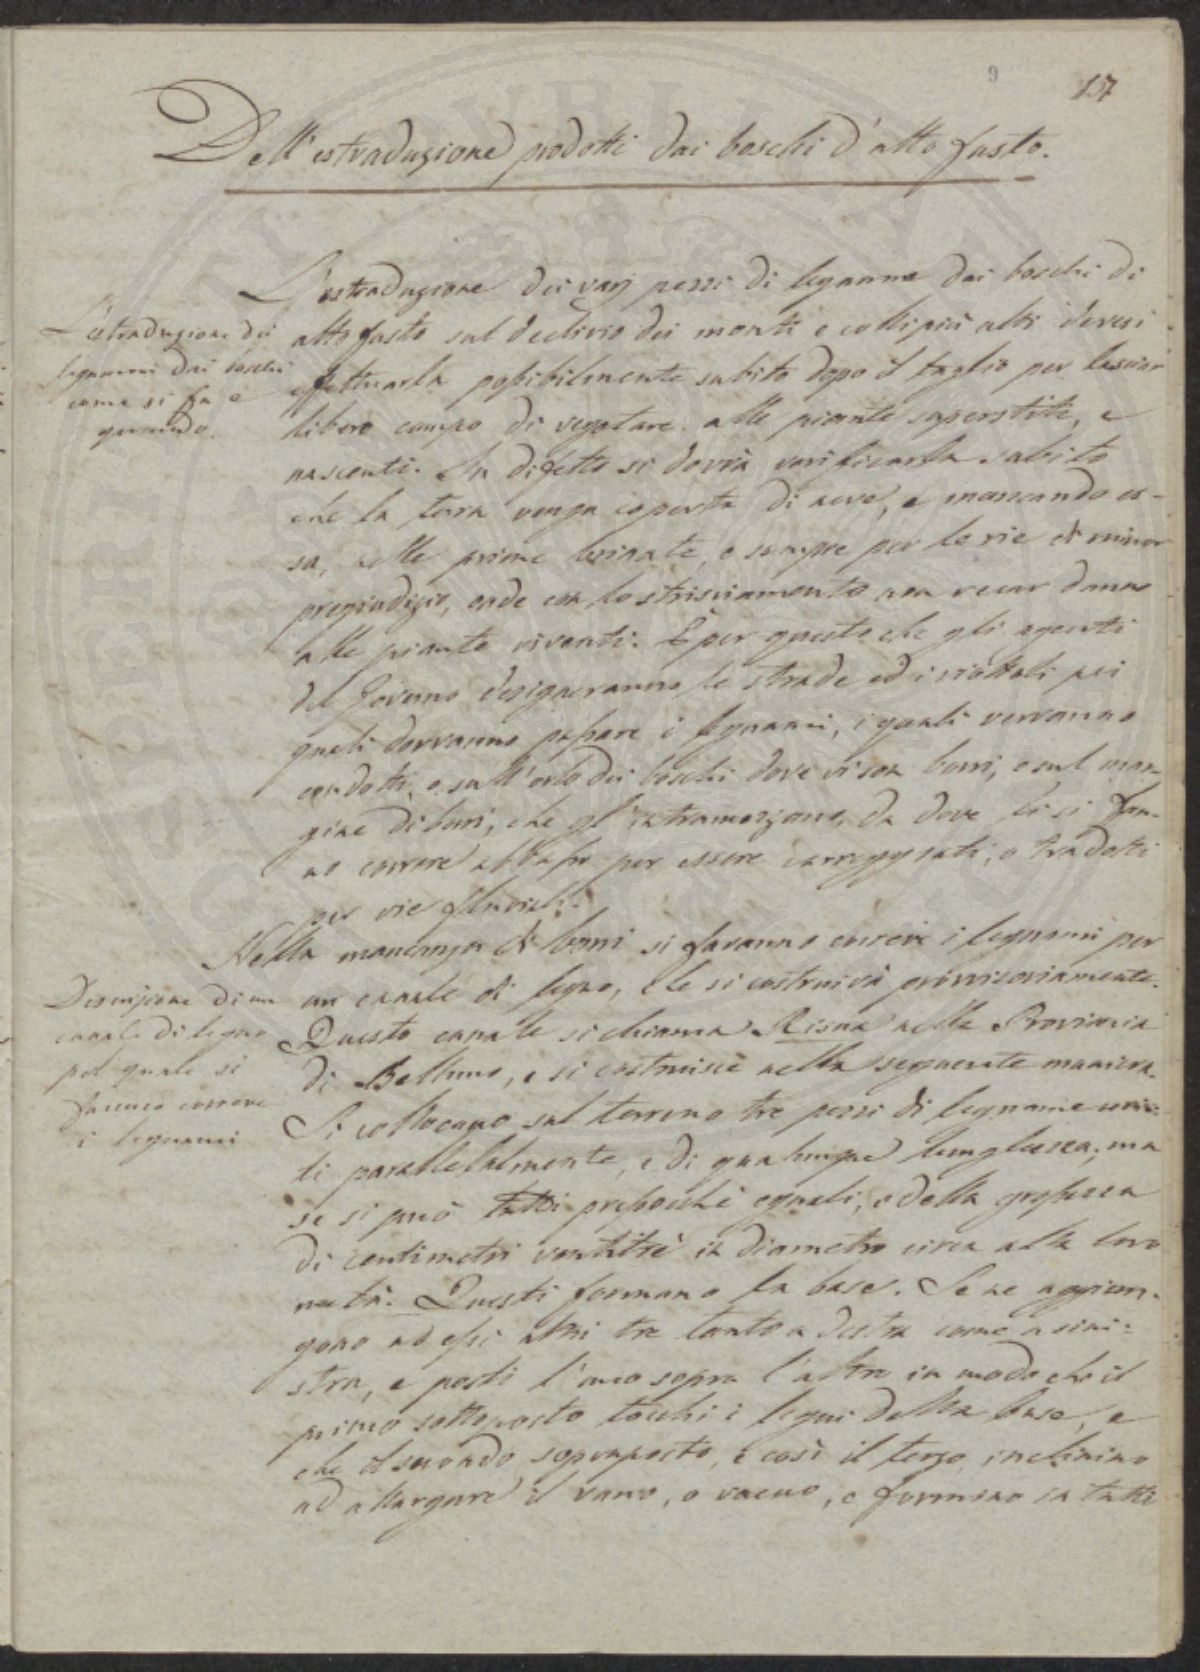 9
157
Dell'estraduzione prodotti dai boschi d'alto fusto.
L'estraduzione dei varj pezzi di legname dai boschi di
alto fusto sul declivio dei monti e colli più alti devesi
effettuarla possibilmente subito dopo il taglio per lasciar
libero campo di vegetare alle piante superstiti, e
nascenti. In difetto si dovrà verificarla subito
che la terra venga coperta di neve, e mancando es-
sa, colle prime brinate, e sempre per le vie di minor
pregiudizio, onde con lo strisciamento non recar danno
alle piante viventi. È per questo che gli agenti
del Governo designeranno le strade ed i viottoli pei
quali dovranno passare i legnami, i quali verranno
condotti, o sull'orlo dei boschi dove vi son borri, o sul mar-
gine di buri, che gl'intramezzano, da dove li si fan-
no correre abbasso per essere carreggiati, o tradotti
per vie fluviali.
Nella mancanza di borri si faranno correre i legnami per
un canale di legno, che si costruirà provvisoriamente.
Questo canale si chiama Risna nella Provincia
di Belluno, e si costruisce nella seguente maniera.
Si collocano sul terreno tre pezzi di legname uni-
ti parallelalmente, e di qualunque lunghezza; ma
se si può tutti pressochè eguali, e della grossezza
di centimetri ventitrè in diametro circa alla loro
metà. Questi formano la base. Se ne aggiun-
gono ad essi altri tre tanto a destra come a sini-
stra, e posti l'uno sopra l'altro in modo che il
primo sottoposto tocchi i legni della base, e
che il secondo soprapposto, e così il terzo inclinino
ad allargare il vano, o vacuo, e formino in tutti
L'estraduzione dei
legnami dai boschi
come si fa e
quando.
Descrizione di un
canale di legno
pel quale si
facciano correre
i legnami